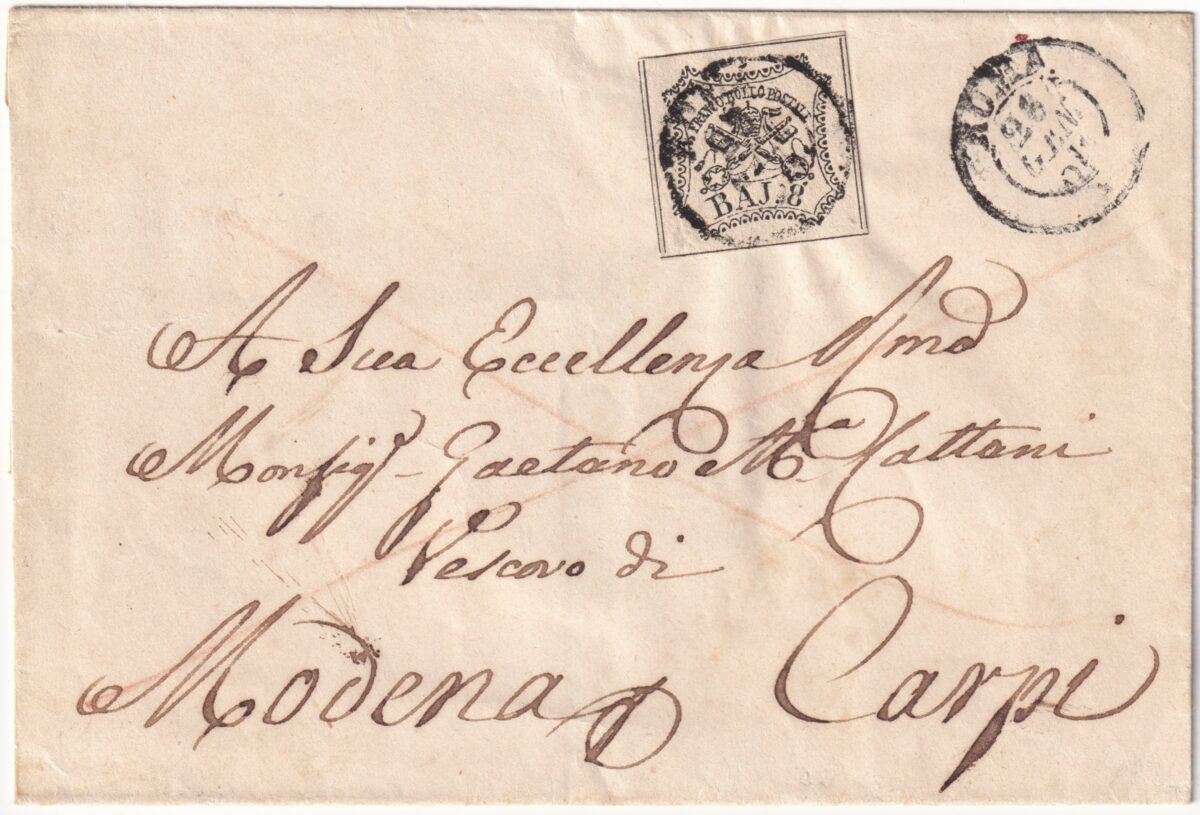 FRANCO BOLLO POSTALE
BAJ. 8
ROMA
GEN
A Sua Eccellenza Rma
Monsigr Gaetano Ma Cattani
Vescovo di
Modena Carpi